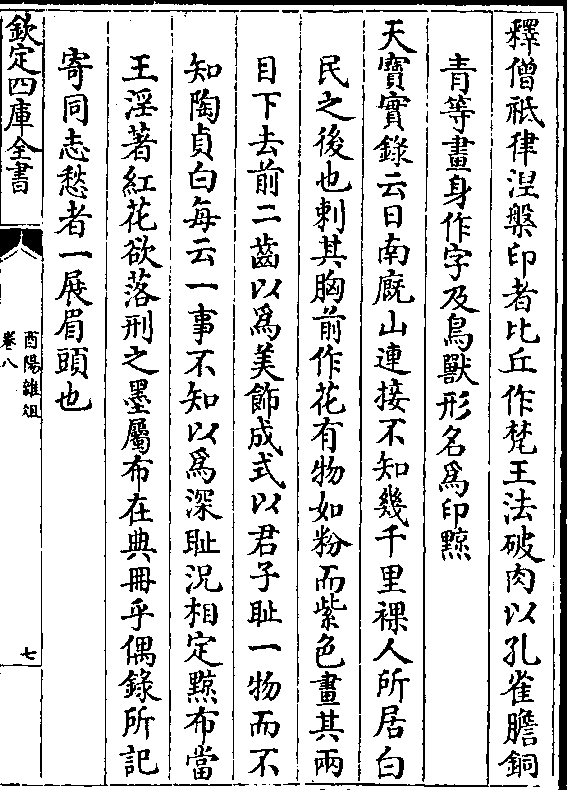 釋僧祇律涅槃印者比丘作梵王法破肉以孔雀膽銅
青等畫身作字及鳥獸形名爲印黥
天寶實錄云日南廐山連接不知幾千里裸人所居白
民之後也刺其胸前作花有物如粉而紫色畫其兩
目下去前二齒以爲美飾成式以君子恥一物而不
知陶貞白每云一事不知以爲深恥況相定黥布當
王淫著紅花欲落刑之墨屬布在典冊乎偶錄所記
寄同志愁者一展眉頭也
欽定四庫全書
酉陽雜俎
卷八
七